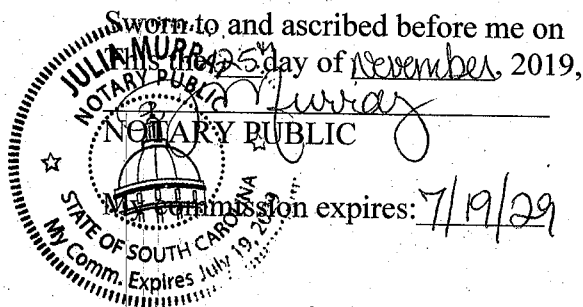 Sworn to and ascribed before me on
This the 25th day of November, 2019,
Murray
NOTARY PUBLIC
My commission expires: 7/19/29
JULIA MURRAY
NOTARY PUBLIC
STATE OF SOUTH CAROLINA
My Comm. Expires July 19,